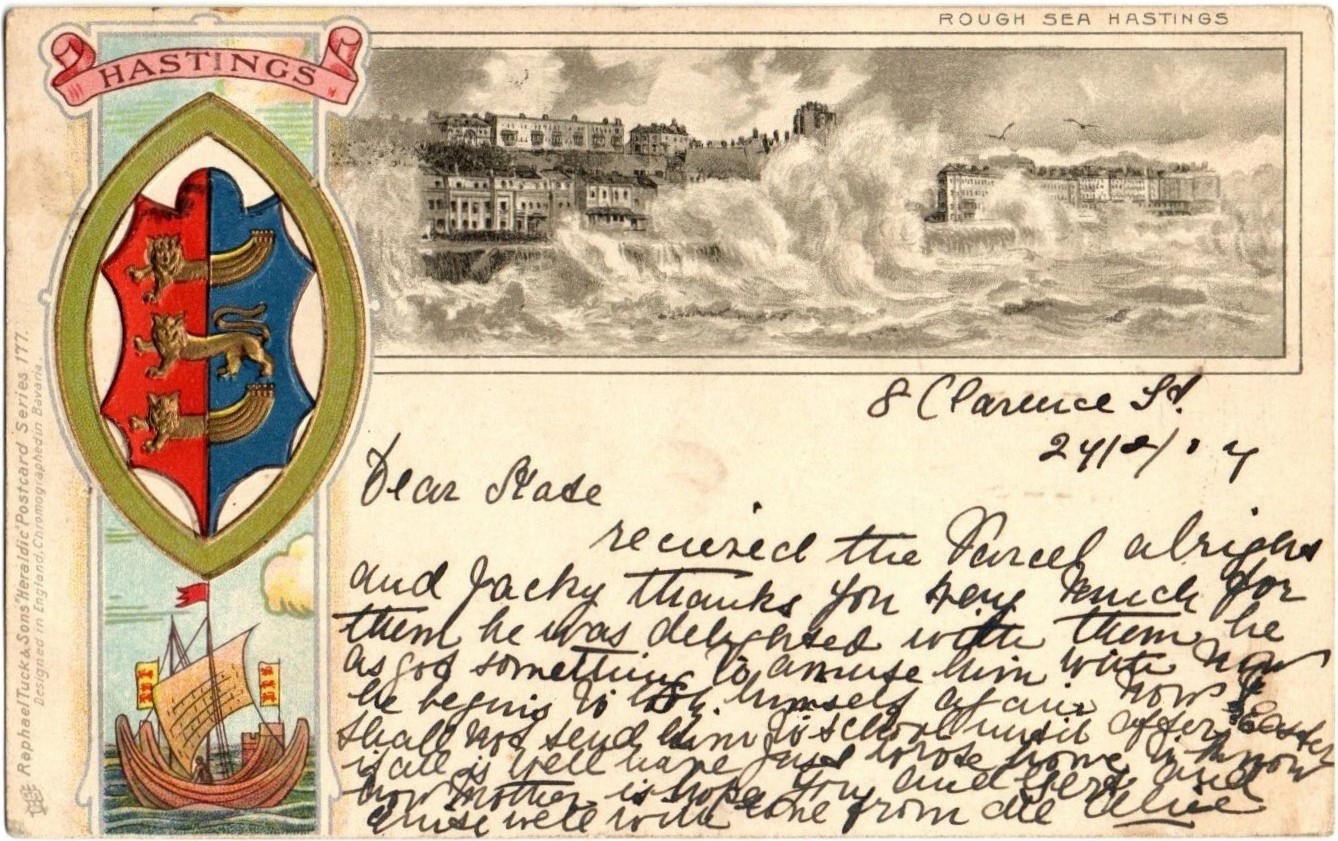 ROUGH SEA HASTINGS
HASTINGS
8 Clarence St.
Dear Kate
recieved the Parcel alright
and Jacky thanks you very much for
them he was delighted with them he
as got something to amuse him with now
he begins to himself again now I
shall not send him to school until after Easter
if all is well have just wrote home to know
how Mother is hope you and and
are well with love from all Alice
Raphael Tuck & Sons "Heraldic" Postcard Series 177.
Designed in England, Chromographed in Bavaria.